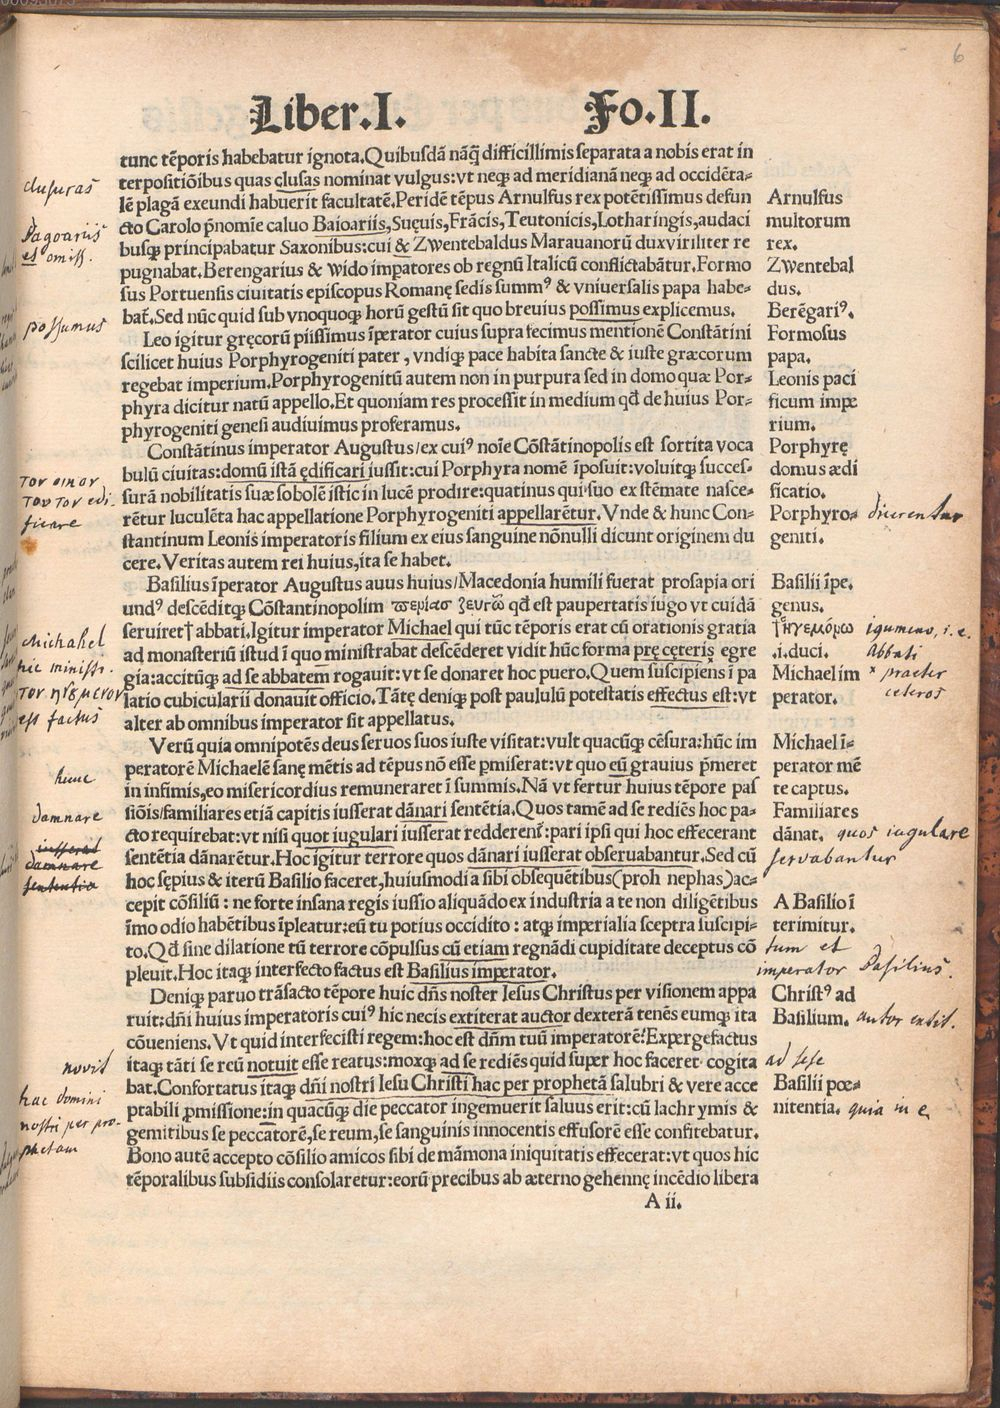 6
Liber.I. Fo.II.
tunc tēporis habebatur ignota.Quibusdā nāq̨ difficillimis separata a nobis erat in
terpositiōibus quas clusas nominat vulgus:vt neq̨ ad meridianā neq̨ ad occidēta-
lē plagā exeundi habuerit facultatē.Peridē tēpus Arnulfus rex potētissimus defun
cto Carolo p̄nomīe caluo Baioariis,Suęuis,Frācis,Teutonicis,Lotharingis,audaci
busq̨ principabatur Saxonibus:cui & Zwentebaldus Marauanorū dux viriliter re
pugnabat.Berengarius & wido impatores ob regnū Italicū conflictabātur.Formo
sus Portuensis ciuitatis episcopus Romanę sedis summ⁹ & vniuersalis papa habe-
bat̄.Sed nūc quid sub vnoquoq̨ horū gestū sit quo breuius possimus explicemus.
Leo igitur gręcorū piissimus īperator cuius supra fecimus mentionē Constātini
scilicet huius Porphyrogeniti pater , vndiq̨ pace habita sancte & iuste græcorum
regebat imperium.Porphyrogenitū autem non in purpura sed in domo quæ Por-
phyra dicitur natū appello.Et quoniam res processit in medium qd̄ de huius Por-
phyrogeniti genesi audiuimus proferamus.
Constātinus imperator Augustus/ex cui⁹ noīe Cōstātinopolis est sortita voca
bulū ciuitas:domū istā ędificari iussit:cui Porphyra nomē īposuit:voluitq̨ succes-
surā nobilitatis suæ sobolē istic in lucē prodire:quatinus qui suo ex stēmate nasce-
rētur luculēta hac appellatione Porphyrogeniti appellarētur.Vnde & hunc Con-
stantinum Leonis imperatoris filium ex eius sanguine nōnulli dicunt originem du
cere.Veritas autem rei huius,ita se habet.
Basilius īperator Augustus auus huius/Macedonia humili fuerat prosapia ori
und⁹ descēditq̨ Cōstantinopolim ϖερίασ ζευγῶ qd̄ est paupertatis iugo vt cuidā
seruiret† abbati.Igitur imperator Michael qui tūc tēporis erat cū orationis gratia
ad monasteriū istud ī quo ministrabat descēderet vidit hūc forma pręcęteris egre
gia:accitūq̨ ad se abbatem rogauit:vt se donaret hoc puero.Quem suscipiens ī pa
latio cubicularii donauit officio.Tātę deniq̨ post paululū potestatis effectus est:vt
alter ab omnibus imperator sit appellatus.
Verū quia omnipotēs deus seruos suos iuste visitat:vult quacūq̨ cēsura:hūc im
peratorē Michaelē sanę mētis ad tēpus nō esse p̱miserat:vt quo eū grauius p̄meret
in infimis,eo misericordius remuneraret ī summis.Nā vt fertur huius tēpore pas
siōis/familiares etiā capitis iusserat dānari sentētia.Quos tamē ad se rediēs hoc pa-
cto requirebat:vt nisi quot iugulari iusserat redderent̄:pari ipsi qui hoc effecerant
sentētia dānarētur.Hoc igitur terrore quos dānari iusserat obseruabantur.Sed cū
hoc sępius & iterū Basilio faceret,huiusmodi a sibi obsequētibus(proh nephas)ac-
cepit cōsiliū : ne forte insana regis iussio aliquādo ex industria a te non diligētibus
īmo odio habētibus īpleatur:eū tu potius occidito : atq̨ imperialia sceptra suscipi-
to.Qd̄ sine dilatione tū terrore cōpulsus cū etiam regnādi cupiditate deceptus cō
pleuit.Hoc itaq̨ interfecto factus est Basilius imperator.
Deniq̨ paruo trāsacto tēpore huic dn̄s noster Iesus Christus per visionem appa
ruit:dn̄i huius imperatoris cui⁹ hic necis extiterat auctor dexterā tenēs eumq̨ ita
cōueniens.Vt quid interfecisti regem:hoc est dn̄m tuū imperatorē?Expergefactus
itaq̨ tāti se reū notuit esse reatus:moxq̨ ad se rediēs quid super hoc faceret cogita
bat.Confortatus itaq̨ dn̄i nostri Iesu Christi hac per prophetā salubri & vere acce
ptabili p̱missione:in quacūq̨ die peccator ingemuerit saluus erit:cū lachrymis &
gemitibus se peccatorē,se reum,se sanguinis innocentis effusorē esse confitebatur.
Bono autē accepto cōsilio amicos sibi de māmona iniquitatis effecerat:vt quos hic
tēporalibus subsidiis consolaretur:eorū precibus ab æterno gehennę incēdio libera
A ii.
Arnulfus
multorum
rex.
Zwentebal
dus.
Berēgari⁹.
Formosus
papa.
Leonis paci
ficum impe
rium.
Porphyrę
domus ædi
ficatio.
Porphyro-
geniti.
Basilii īpe.
genus.
†ἡγεμόμω
.i.duci.
Michael im
perator.
Michael ī-
perator mē
te captus.
Familiares
dānat.
A Basilio ī
terimitur.
Christ⁹ ad
Basilium.
Basilii pœ-
nitentia.
clusuras
Bagoariis
es omiss.
possumus
τον οικον
τουτον edi-
ficare
Michahel
hic ministr.
τον ηγουμενον
est factus
hunc
damnare
iusserat
damnare
sententia
novit
hac domini
nostri per pro-
phetam
dicerentur
igumeno, i. e.
abbati
praeter
ceteros
quos iugulare
servabantur
tum et
imperator Basilius.
autor extit.
ad sese
quia in e